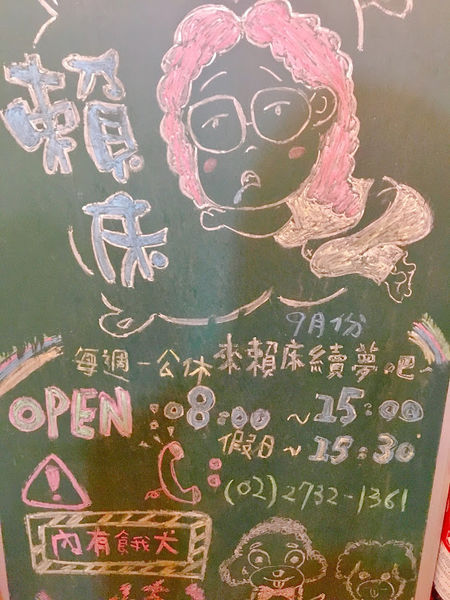 賴床
9月份
每週一公休 來賴床續夢吧~
OPEN 08:00 ~ 15:00
假日 ~ 15:30
(02)2732-1361
內有餓犬